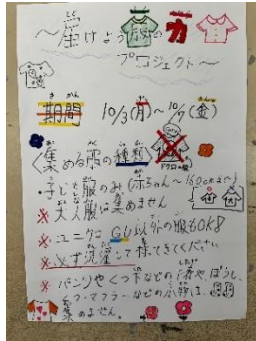 ～届けよう、服のチカラ
プロジェクト～
期間 10/3(月)～10/7(金)
〈集める服の種類〉
・子ども服のみ(赤ちゃん～160cmまで)
※大人服は集めません
※ユニクロ GU以外の服もOK!!
※必ず洗濯して持てきてください
※パンツやくつ下などの下着やぼうし、
マフラーなどの小物は、
集めません。